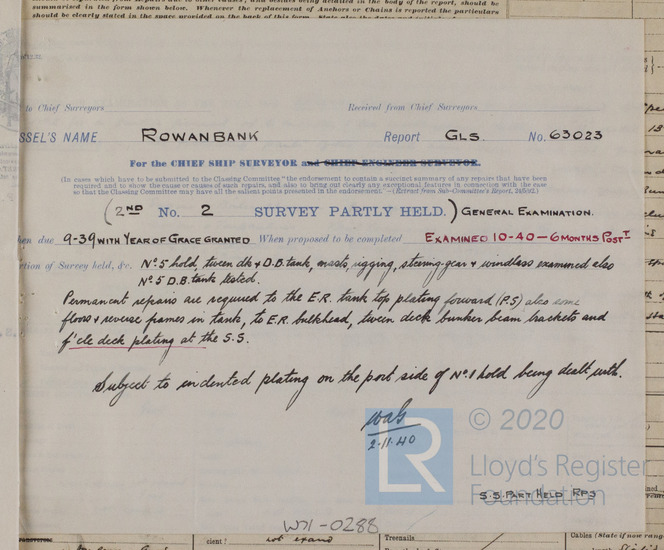 summarized in the form shown below. Whenever the replacement of Anchors or Chains is reported the particulars
should be clearly stated in the space provided on the back of this form.
to Chief Surveyors
Received from Chief Surveyors
SSEL'S NAME ROWANBANK Report GLS. No. 63023
For the CHIEF SHIP SURVEYOR and CHIEF ENGINEER SURVEYOR.
(In cases which have to be submitted to the Classing Committee "the endorsement to contain a succinct summary of any repairs that have been
required and to show the cause or causes of such repairs, and also to bring out clearly any exceptional features in connection with the case
so that the Classing Committee may have all the salient points presented in the endorsement."—(Extract from Sub-Committee's Report,
(2ND No. 2 SURVEY PARTLY HELD.) GENERAL EXAMINATION.
hen due 9-39 WITH YEAR OF GRACE GRANTED When proposed to be completed EXAMINED 10-40 — 6 MONTHS POSTT
ction of Survey held, &c. No 5 hold, tween dks & D.B. tank, masts, rigging, steering gear & windlass examined also
No 5 D.B. tank tested.
Permanent repairs are required to the E.R. tank top plating forward (P.S) also some
floors & reverse frames in tank, to E.R. bulkhead, tween deck bunker beam brackets and
f'cle deck plating at the S.S.
Subject to indented plating on the port side of No. 1 hold being dealt with.
WaG
2-11-40
LR
© 2020
Lloyd's Register
Foundation
S.S. PART HELD RPS
W71-0288
cient?
not exand
Treenails
Cables (State if now rang